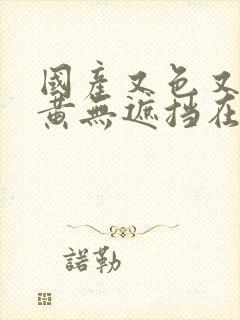 國產又色又
黃無遮挡在
諾勒